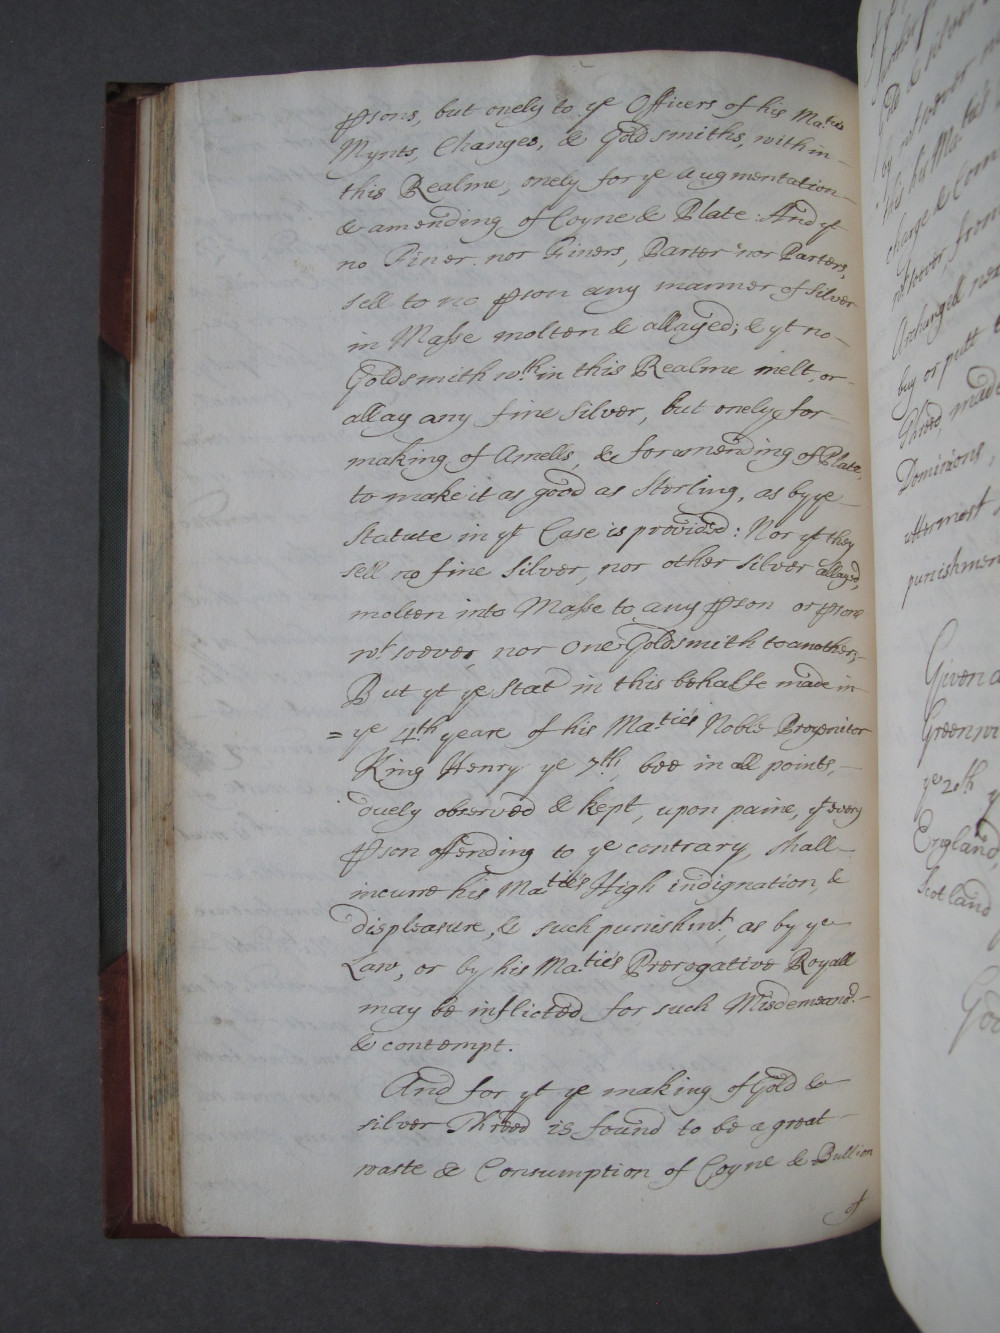 p̱sons, but onely to ye Officers of his Ma.ties
Mynts, Changes, & Goldsmiths, within
this Realme, onely for ye Augmentation
& amending of Coyne & Plate: And yt
no Finer nor Finers, Parter nor Parters,
sell to no p̱son any manner of Silver
in Masse molten & allayed; & yt no
Goldsmith wth.in this Realme melt, or
allay any fine Silver, but onely for
making of Amells, & for amending of Plate,
to make it as good as Sterling, as by ye
Statute in yt Case is provided: Nor yt they
sell no fine Silver, nor other Silver allayed,
molten into Masse to any p̱son or p̱sons
wt.soever, nor One Goldsmith to another;
But yt ye Stat in this behalfe made in
= ye 4th yeare of his Ma.ties Noble Progenitor
King Henry ye 7th, bee in all points,
duely observed & kept, upon paine, yt every
p̱son offending to ye contrary, shall
incurre his Ma.ties High indignation, &
displeasure, & such punishmt. as by ye
Law, or by his Ma.ties Prerogative Royall
may be inflicted for such Misdemeanor.
& contempt.
And for yt ye making of Gold &
silver Threed is found to be a great
waste & Consumption of Coyne & Bullion
of
buy or putt
Threed, made
Dominions,
uttermost
punishmen
Given a
Greenwi
ye 20th y
England,
Scotland
God